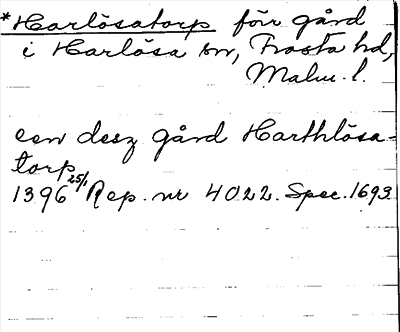 *Harlösatorp förr gård
i Harlösa sn, Frosta hd,
Malm. l.
een desz gård Harthlösa-
torp
1396 25/1 Rep. nr 4022. Spec. 1693